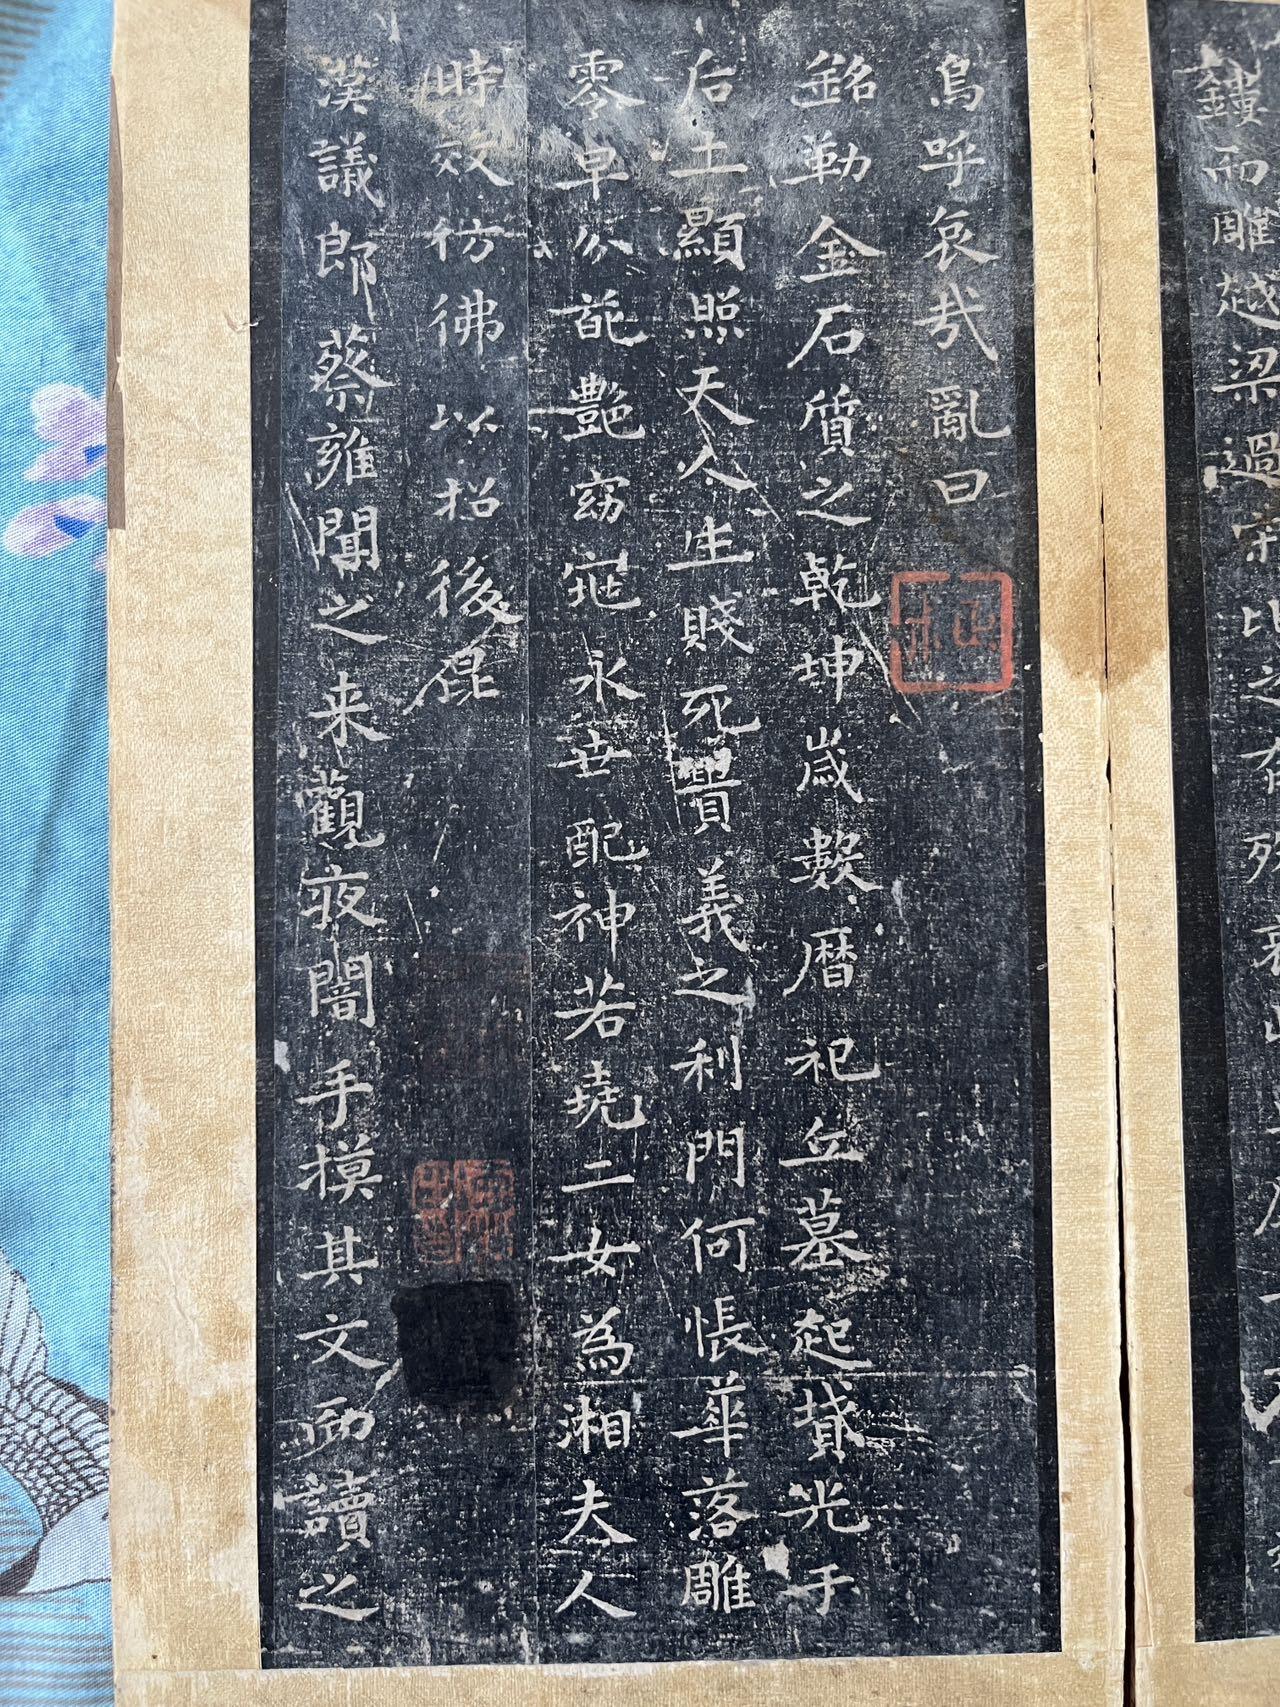 鏤而雕越梁過宋比之有殊
嗚呼哀哉亂曰
銘勒金石質之乾坤歲數曆祀丘墓起墳光于
后土顯照天人生賤死貴義之利門何悵華落雕
零早分葩艷窈窕永世配神若堯二女為湘夫人
時效彷彿以招後昆
漢議郎蔡雍聞之来觀夜闇手摸其文而讀之